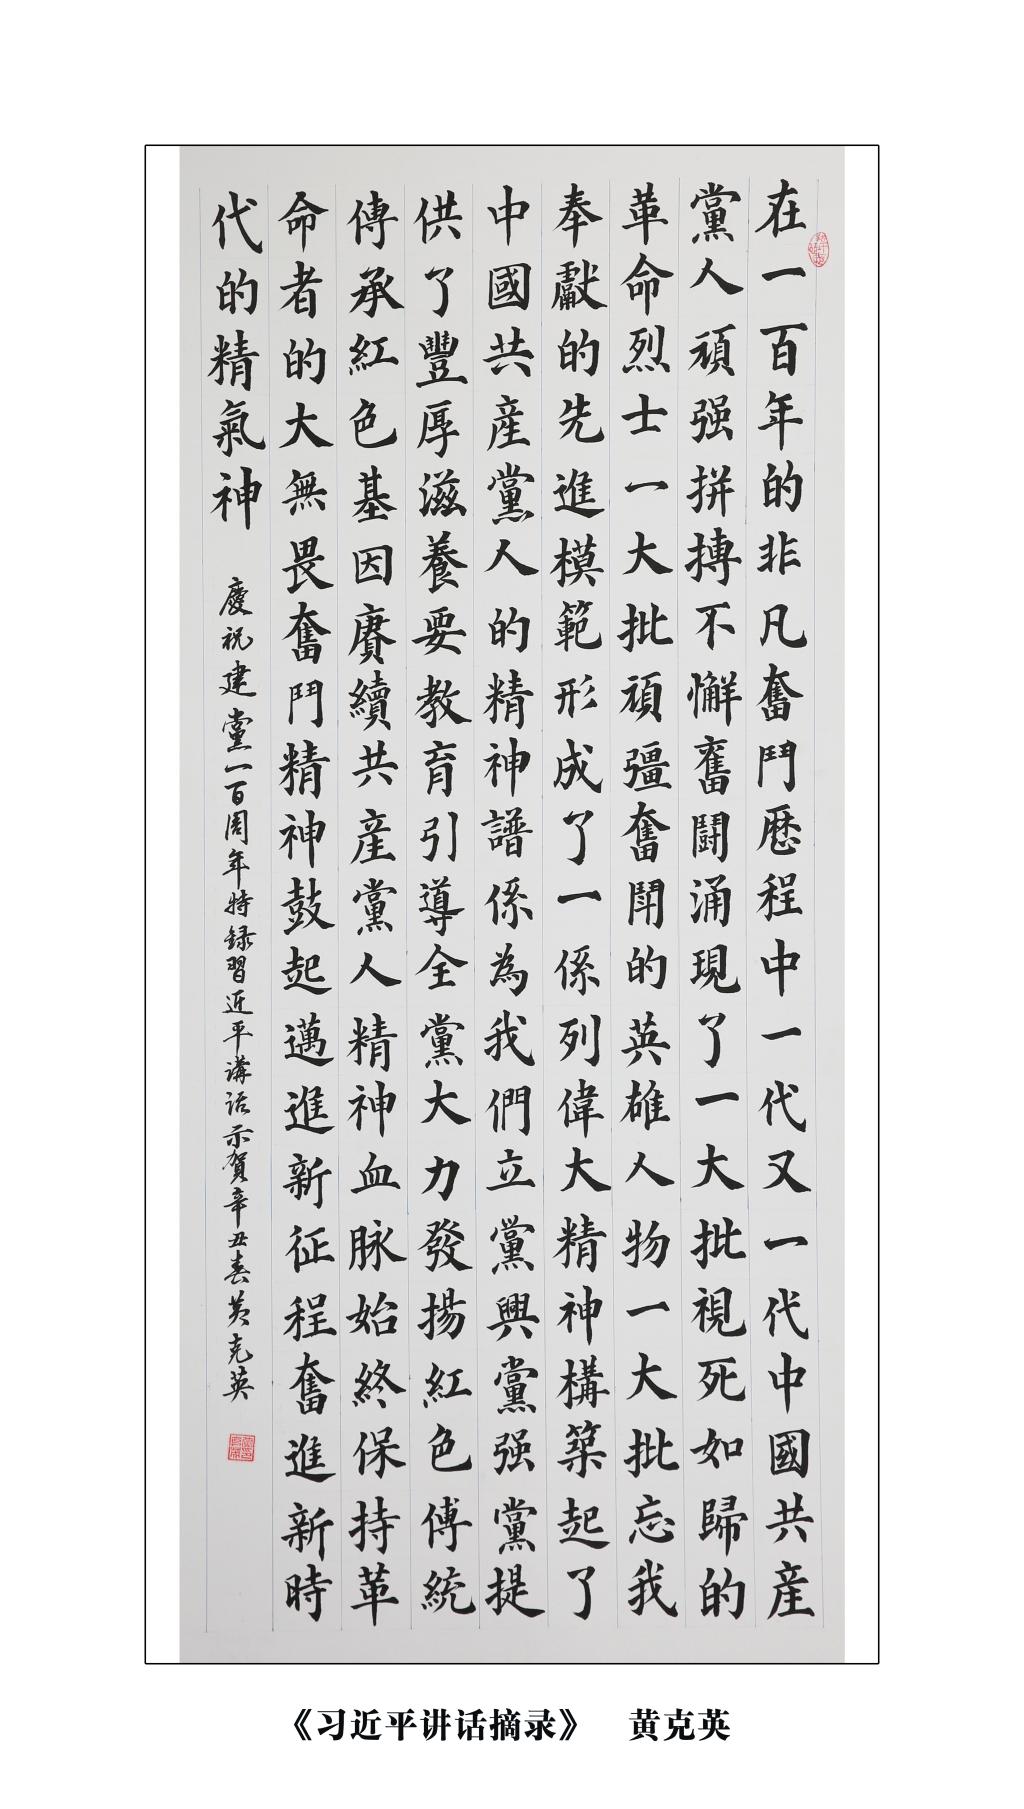 在一百年的非凡奮鬥歷程中一代又一代中國共產
黨人頑强拼搏不懈奮鬪涌現了一大批視死如歸的
革命烈士一大批頑彊奮鬦的英雄人物一大批忘我
奉獻的先進模範形成了一係列偉大精神構築起了
中國共產黨人的精神譜係為我們立黨興黨强黨提
供了豐厚滋養要教育引導全黨大力發揚紅色傳統
傳承紅色基因賡續共產黨人精神血脉始終保持革
命者的大無畏奮鬥精神鼓起邁進新征程奮進新時
代的精氣神
慶祝建黨一百周年特録習近平講話示賀辛丑春黃克英
《习近平讲话摘录》 黄克英